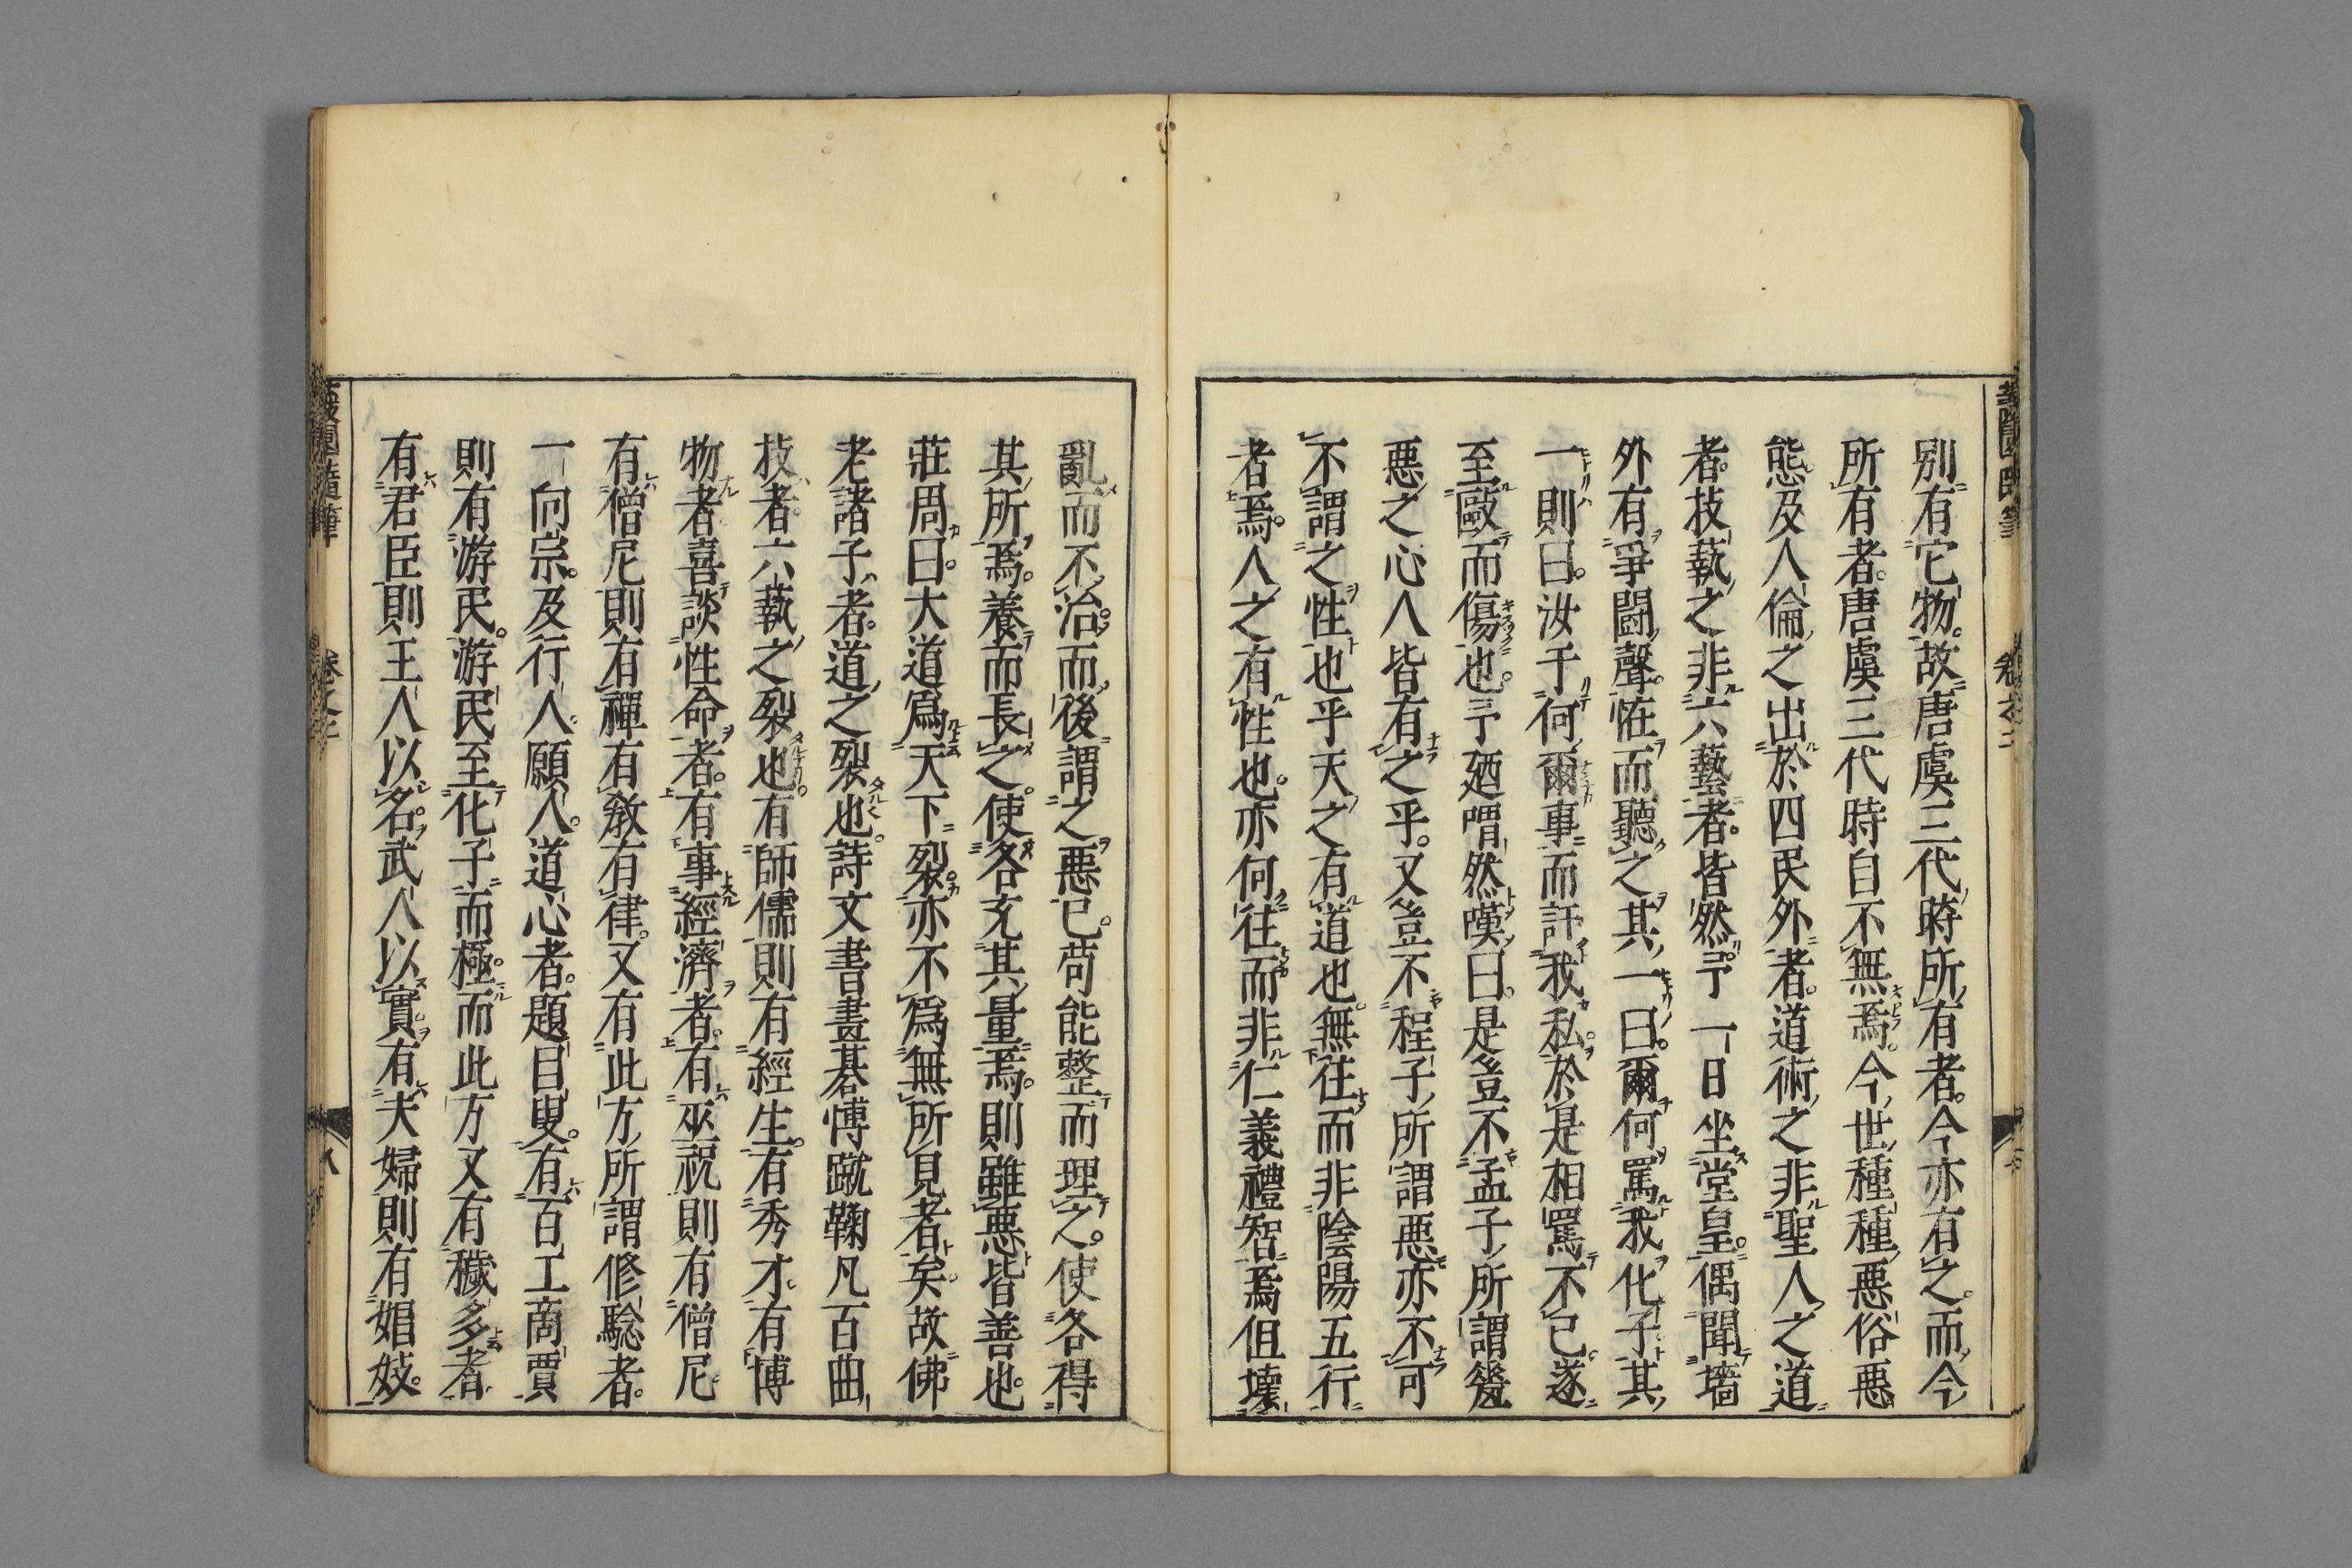 別有它物。故唐虞三代時所有者。今亦有之。而今
所有者。唐虞三代時自不無焉。今世種種惡俗惡
態。及人倫之出於四民外者。道術之非聖人之道
者。技藝之非六藝者。皆然。予一日坐堂皇。偶聞墻
外有爭鬪聲。恠而聽之。其一曰。爾何罵我化子。其
一則曰。汝干何爾事。而訐我私。於是相罵不已。遂
至毆而傷也。予廼喟然嘆曰。是豈不孟子所謂羞
惡之心人皆有之乎。又豈不程子所謂惡亦不可
不謂之性也乎。天之有道也。無往而非陰陽五行
者焉。人之有性也。亦何往而非仁義禮智焉。但壞
亂而不治。而後謂之惡已。苟能整而理之。使各得
其所焉。養而長之。使各充其量焉。則雖惡皆善也。
莊周曰。大道爲天下裂。亦不爲無所見者矣。故佛
老諸子者。道之裂也。詩文書畫碁博蹴鞠凡百曲
技者。六藝之裂也。有師儒則有經生。有秀才。有博
物者。喜談性命者。有事經濟者。有巫祝則有僧尼。
有僧尼則有禪有教有律。又有此方所謂修驗者。
一向宗。及行人。願人。道心者。題目叟。有百工商賈
則有游民。游民至化子而極。而此方又有穢多者。
有君臣則王人以名。武人以實。有夫婦則有娼妓。
蘐園隨筆
卷之二
八